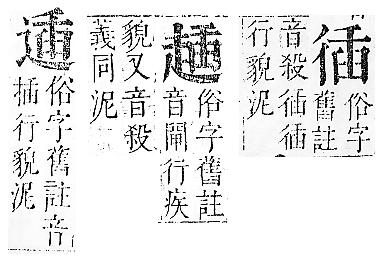 俗字
舊註
音殺
行貌泥
俗字舊註
音閘行疾
貌又音殺
義同泥
俗字舊註音
插行貌泥